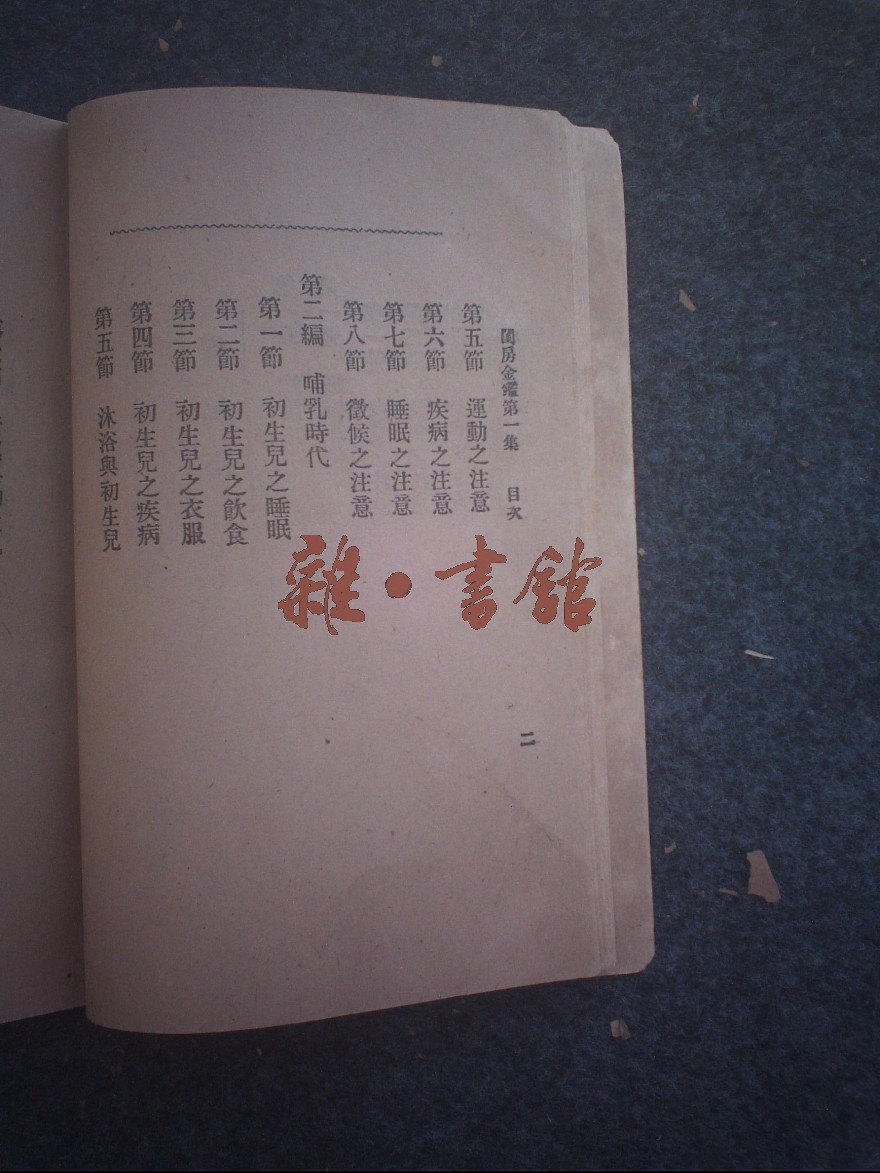 閨房金鑑第一集 目次
第五節 運動之注意
第六節 疾病之注意
第七節 睡眠之注意
第八節 徵候之注意
第二編 哺乳時代
第一節 初生兒之睡眠
第二節 初生兒之飲食
第三節 初生兒之衣服
第四節 初生兒之疾病
第五節 沐浴與初生兒
二
雜·書館